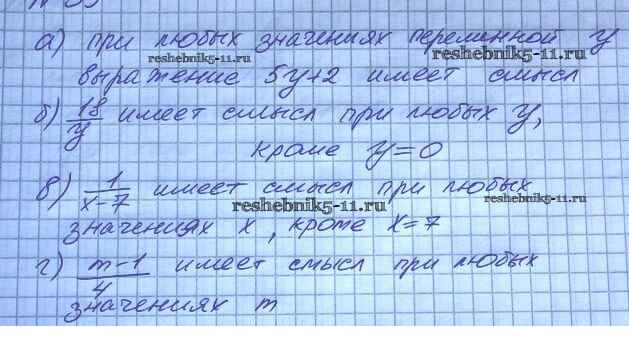 а) при любых значениях переменной y
reshebnik5-11.ru
reshebnik5-11.ru
выражение 5y+2 имеет смысл
б) 18/y имеет смысл при любых y,
кроме y=0
в) 1/x-7 имеет смысл при любых
reshebnik5-11.ru
reshebnik5-11.ru
значениях x, кроме x=7
г) m-1/4 имеет смысл при любых
значениях m